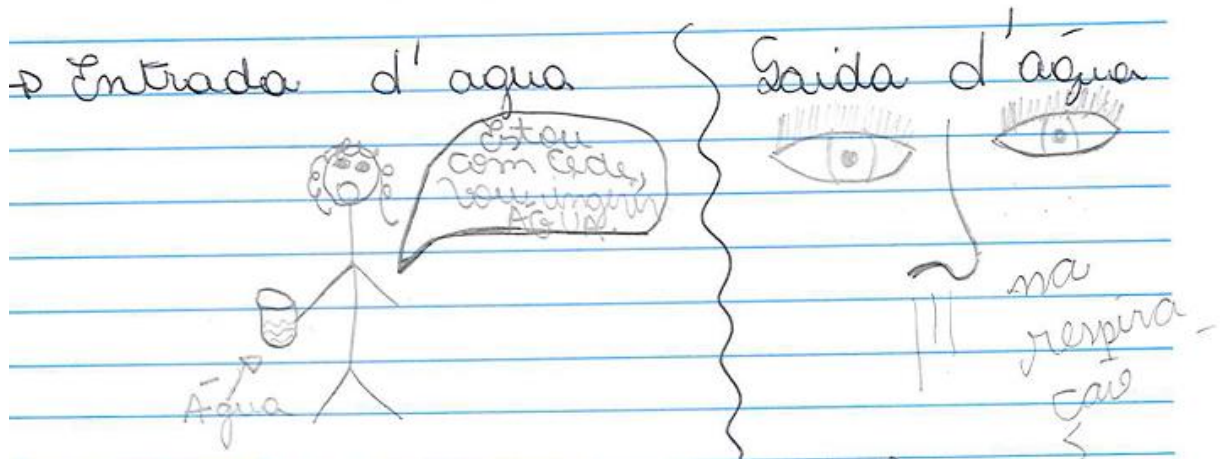 → Entrada d' agua
Estou
com cede,
vou ingerir
ÁGUA.
Água
Saida d' água
na
respira-
ção